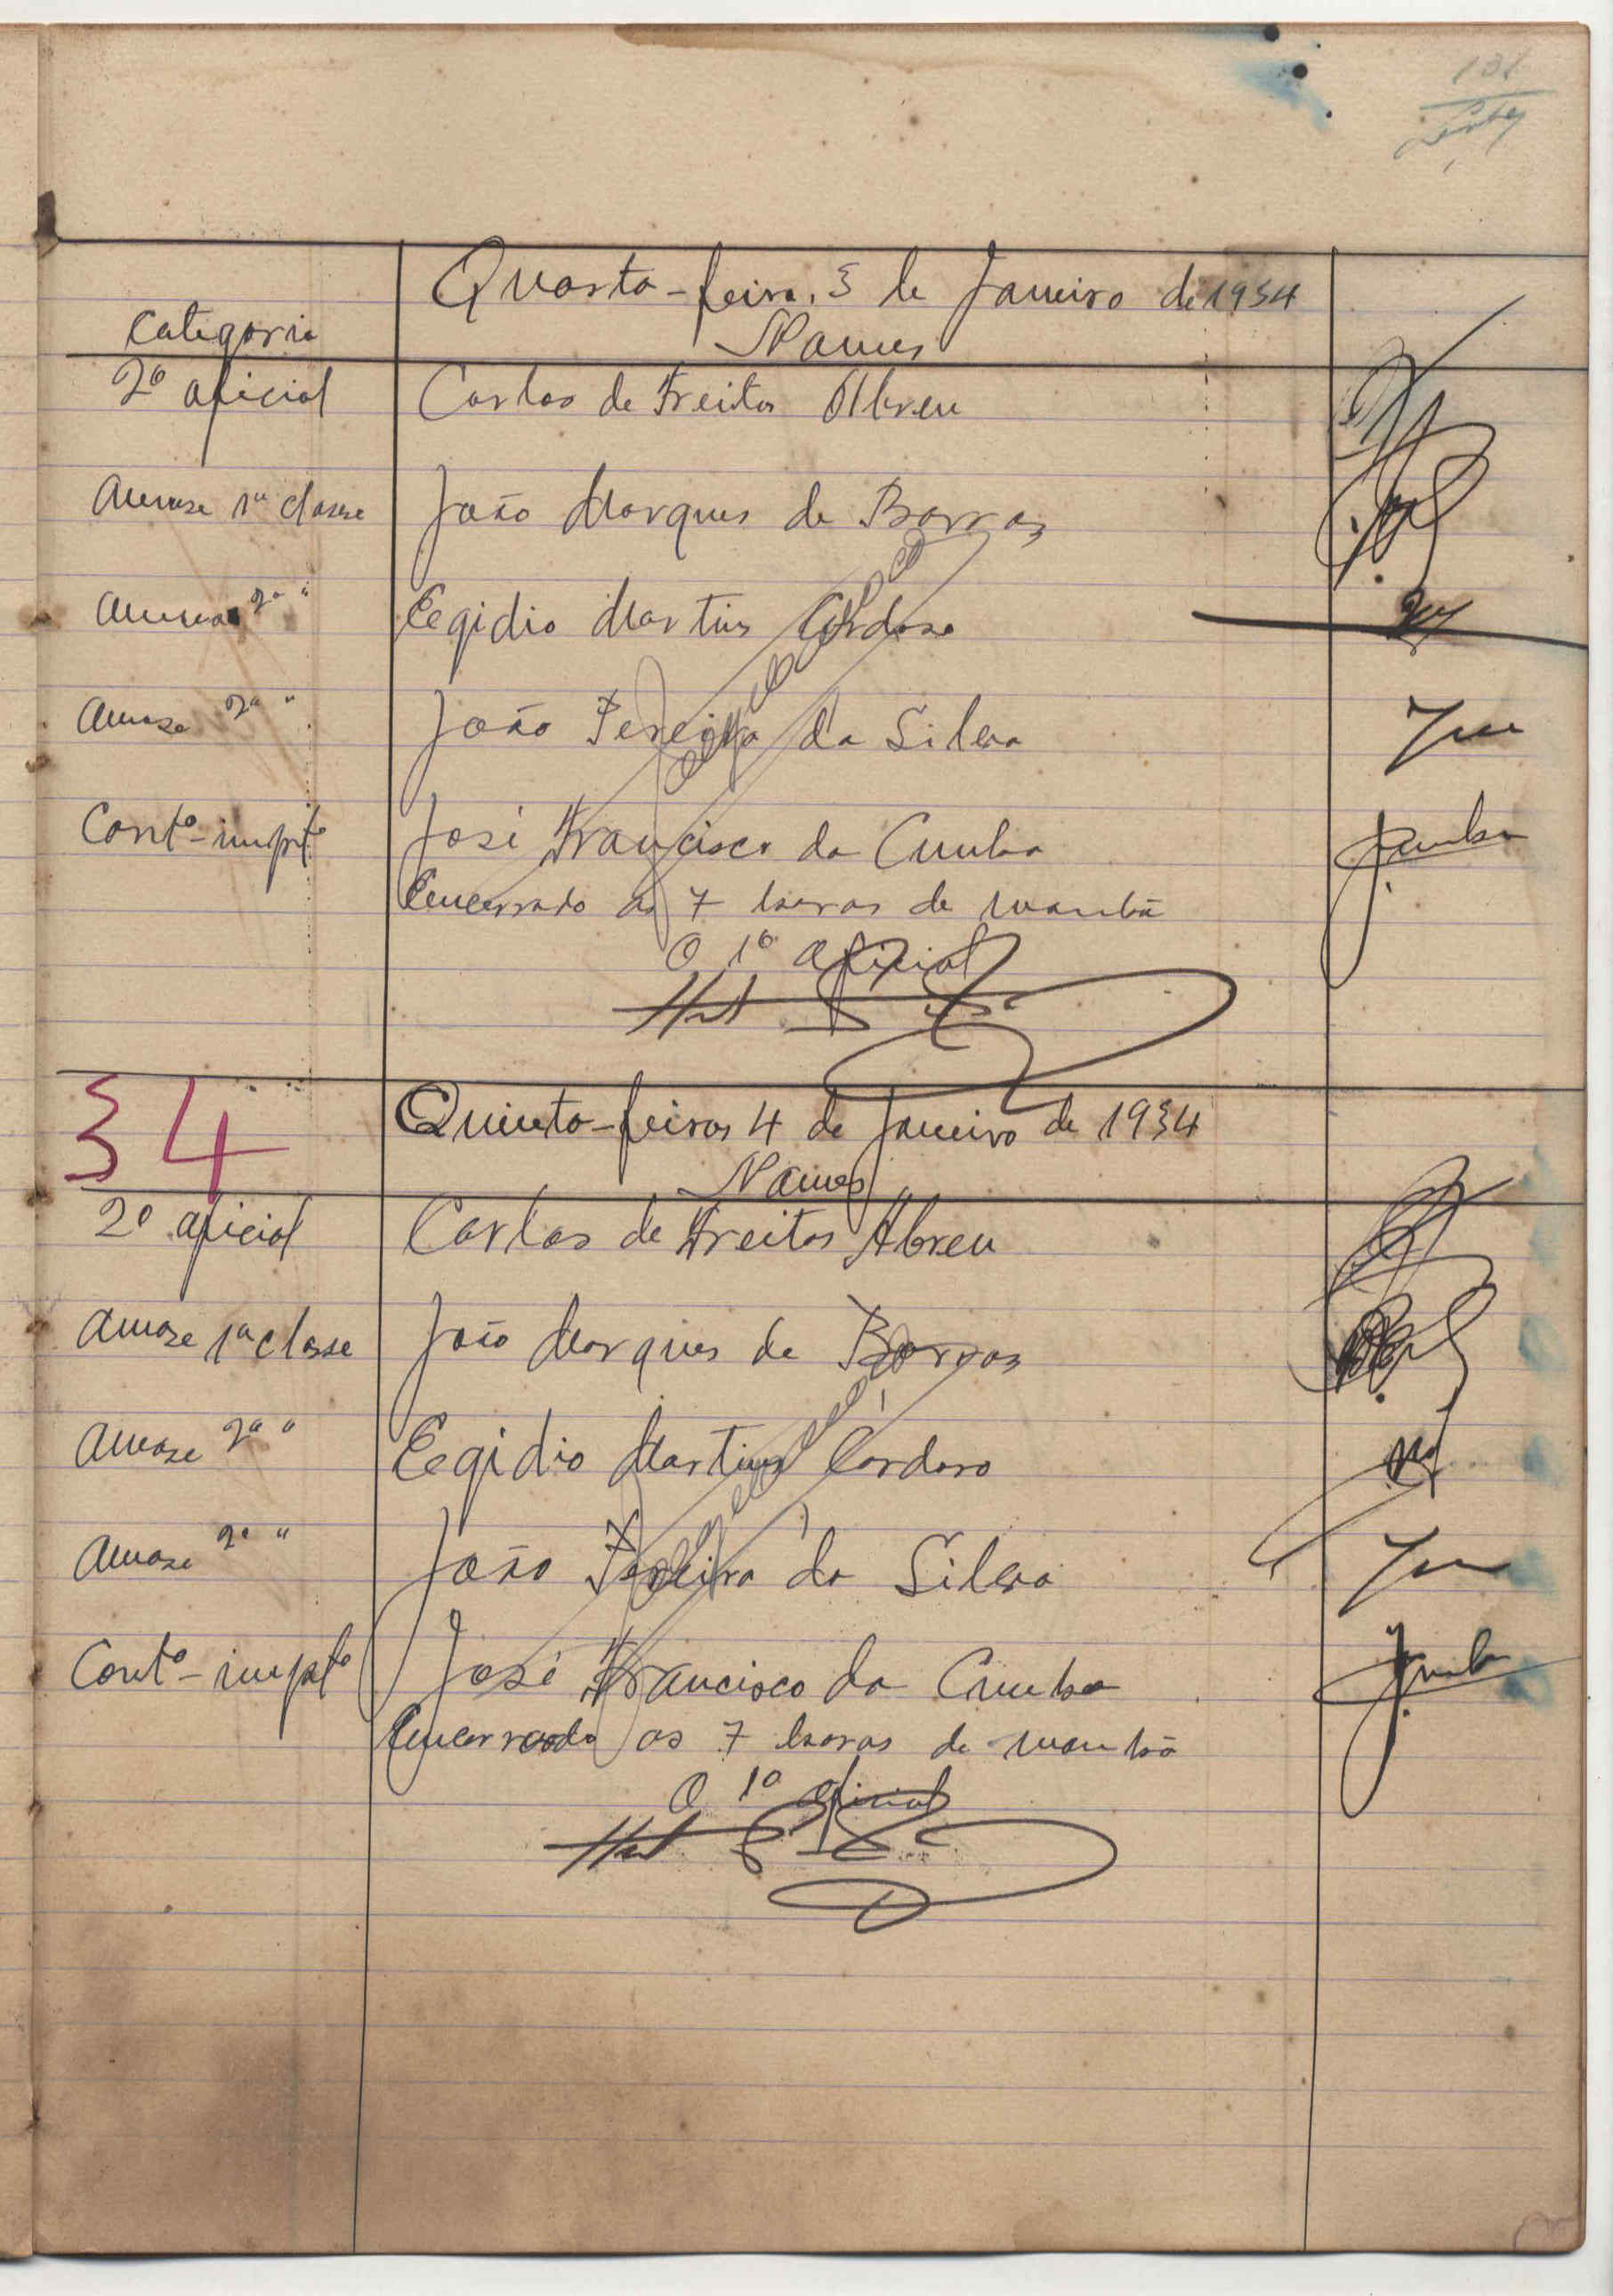 131
Quarta-feira, 3 de Janeiro de 1934
Categoria Nomes
2º oficial Carlos de Freitas Abreu
Amase 1ª classe João Marques de Barros
2ª " Egidio Martins Cardoso
Amase 2ª " João Pereira da Silva
Contº-imptº José Francisco da Cunha JCunha
Encerrado as 7 horas de manhã
O 1º oficial
34
Quinta-feira 4 de Janeiro de 1934
Nomes
2º oficial Carlos de Freitas Abreu
Amase 1ª classe João Marques de Barros
Amase 2ª " Egidio Martins Cardoso
Amase 2ª " João Pereira da Silva
Contº-imptº José Francisco da Cunha JCunha
Encerrado as 7 horas de manhã
O 1º oficial